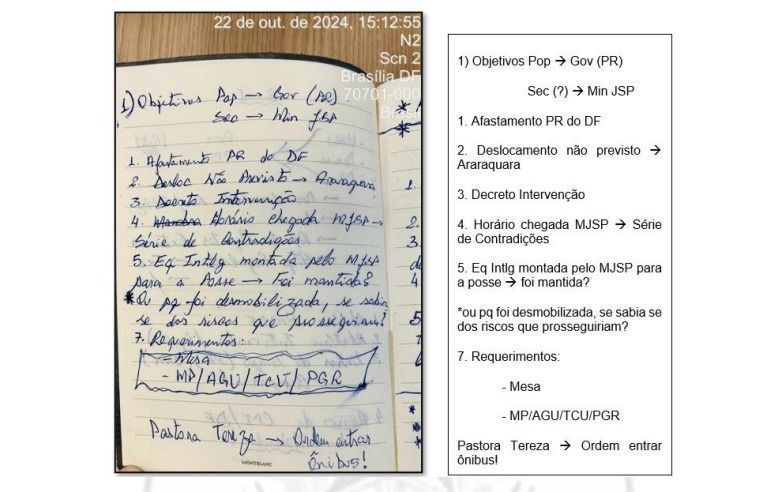 22 de out. de 2024, 15:12:55
N2
Scn 2
Brasília DF
70701-000
Brasil
1) Objetivos Pop → Gov (PR)
Sec → Min JSP
1. Afastamento PR do DF
2. Desloc Não Previsto → Araraquara
3. Decreto Intervenção
4. Horário chegada MJSP →
Série de Contradições
5. Eq Intlg montada pelo MJSP
para a Posse → Foi mantida?
*Ou pq foi desmobilizada, se sabia
se dos riscos que prosseguiriam?
7. Requerimentos:
- Mesa
- MP/AGU/TCU/PGR
Pastora Tereza → Ordem entrar
ônibus!
MONTBLANC
1.
2.
3.
de
4.
5
1) Objetivos Pop → Gov (PR)
Sec (?) → Min JSP
1. Afastamento PR do DF
2. Deslocamento não previsto →
Araraquara
3. Decreto Intervenção
4. Horário chegada MJSP → Série
de Contradições
5. Eq Intlg montada pelo MJSP para
a posse → foi mantida?
*ou pq foi desmobilizada, se sabia se
dos riscos que prosseguiriam?
7. Requerimentos:
- Mesa
- MP/AGU/TCU/PGR
Pastora Tereza → Ordem entrar
ônibus!